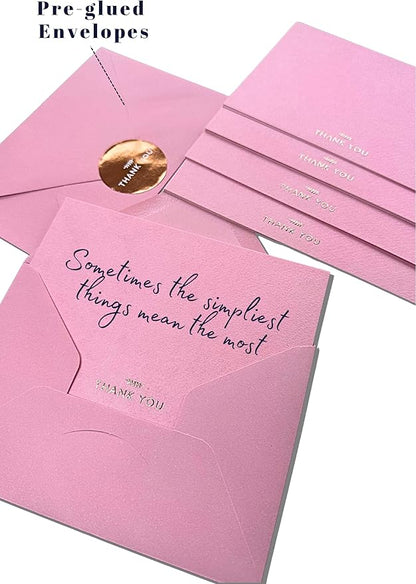 Pre-glued
Envelopes
THANK YOU
THANK YOU
THANK YOU
THANK YOU
THANK YOU
Sometimes the simpliest
things mean the most
THANK YOU